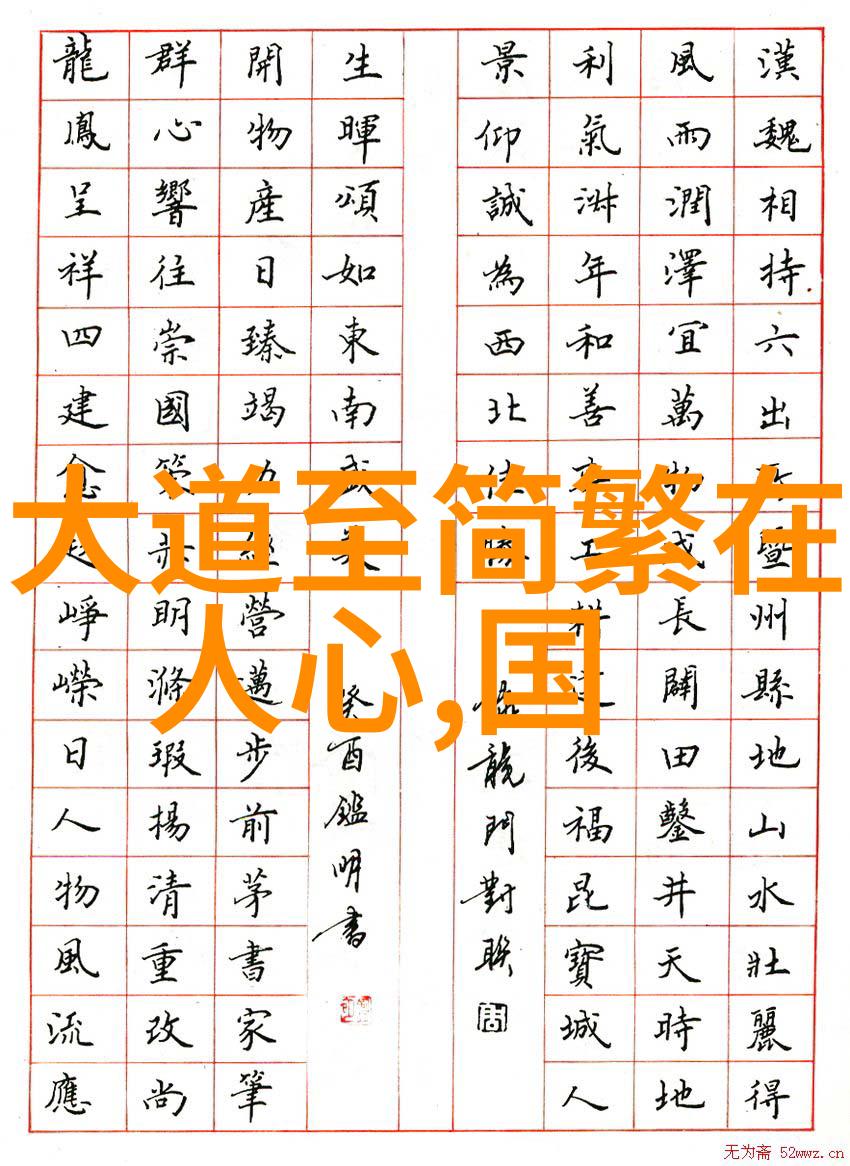 漢魏相持六出暨州縣地山水壯麗得
風雨潤澤宜萬物成長闢田鑿井天時地
利氣年和善工耕後福昆寶城人
景仰誠為西北佳勝
龍門對聯
生暉頌如東南盛
癸酉鑑明書
開物產日臻竭力經營邁步前茅書家筆
群心響往崇國策明滌瑕揚清重改尚
龍鳳呈祥四建念起崢嶸日人物風流應
大道至简繁在
人心,国
无为斋 52wwz.cn